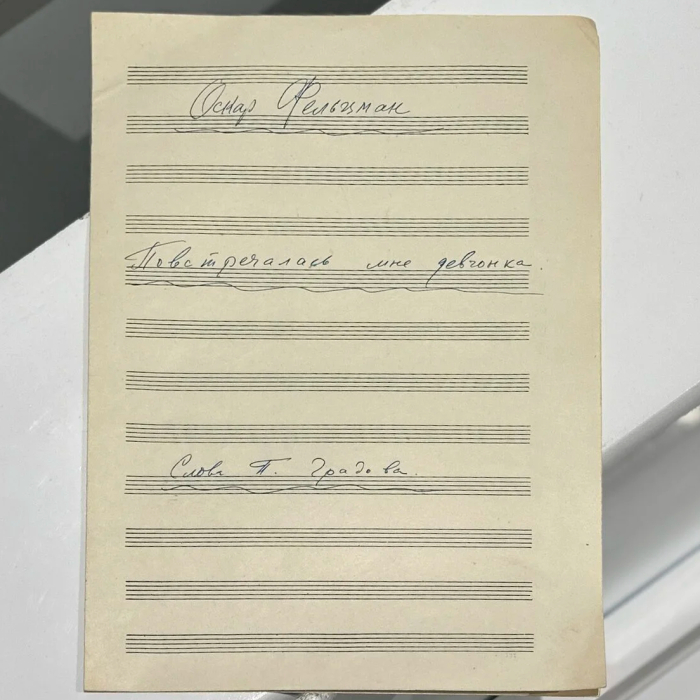 Оскар Фельцман
Повстречалась мне девчонка.
Слова П. Градова.